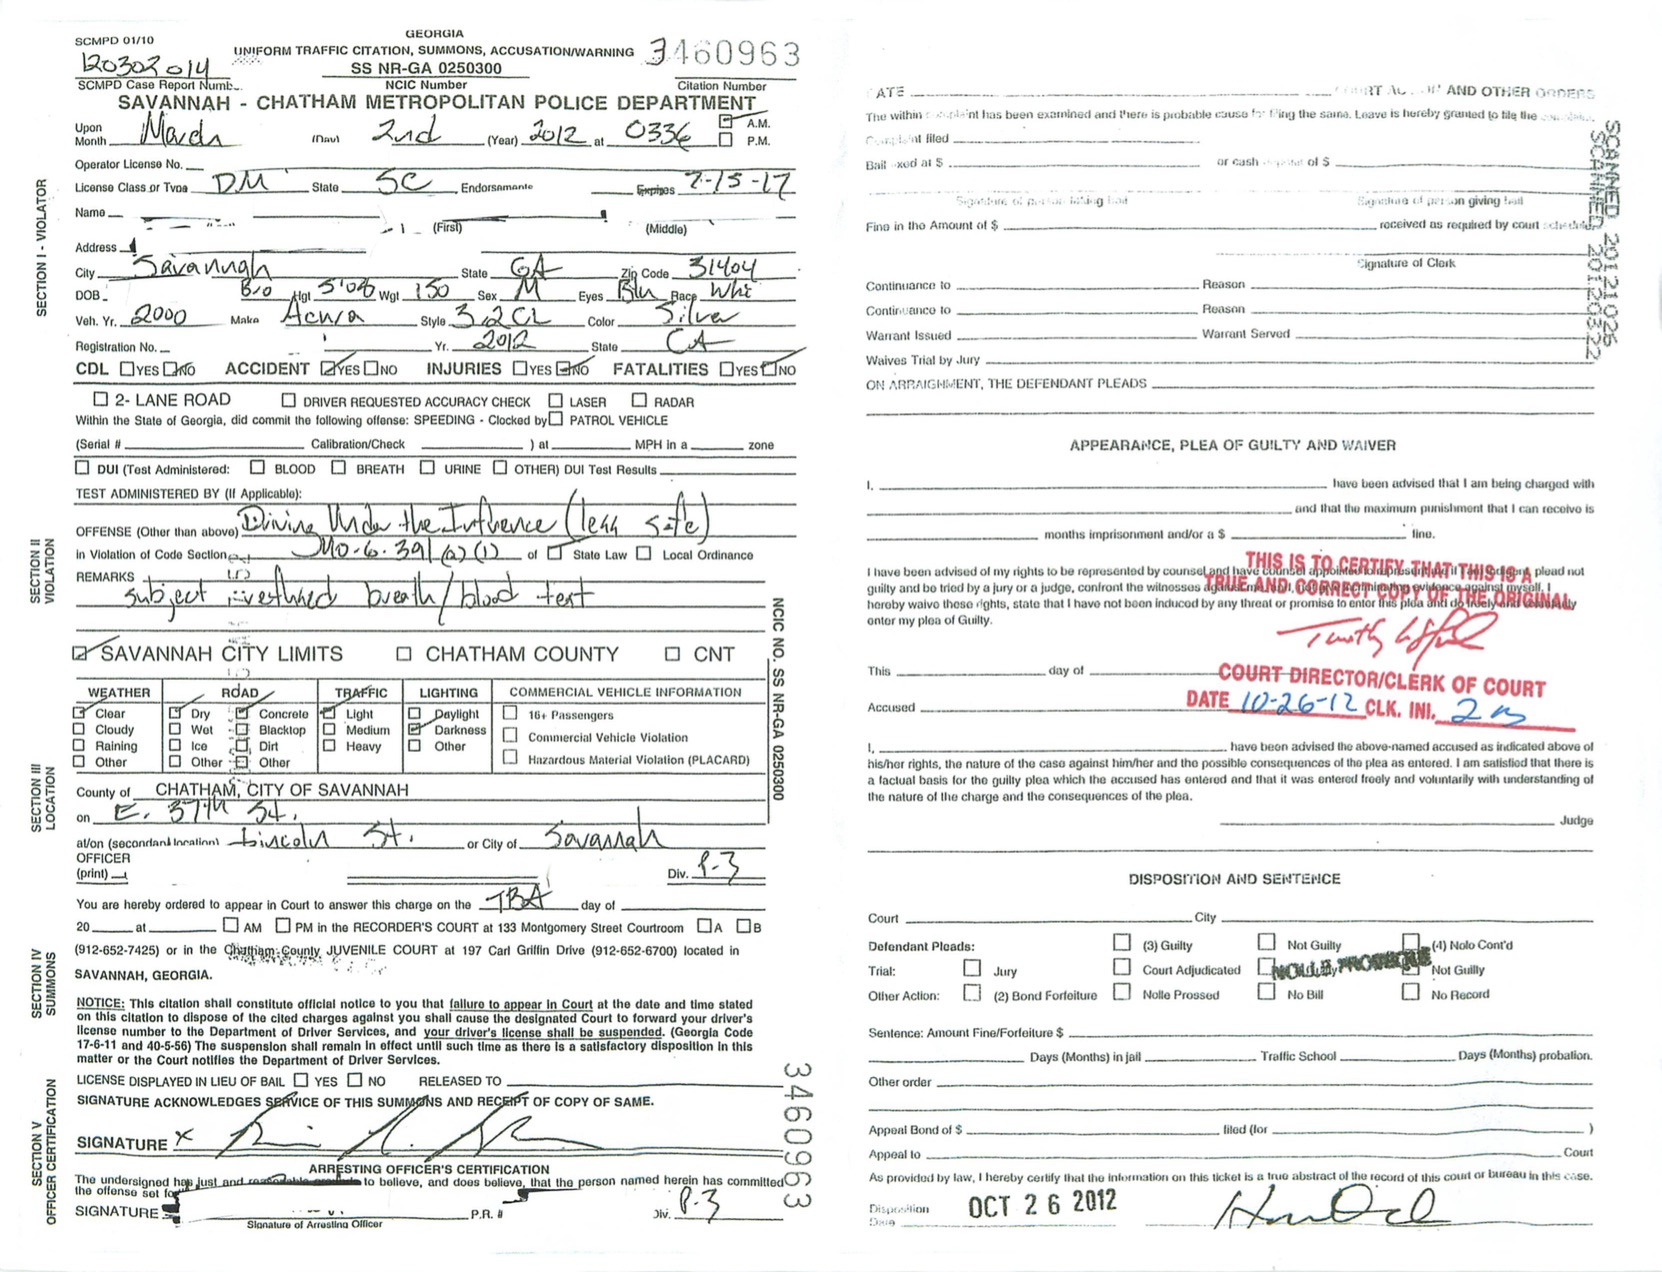 SCMPD 01/10
GEORGIA
UNIFORM TRAFFIC CITATION, SUMMONS, ACCUSATION/WARNING
3460963
120302014
SS NR-GA 0250300
SCMPD Case Report Numb
NCIC Number
Citation Number
SAVANNAH - CHATHAM METROPOLITAN POLICE DEPARTMENT
Upon Month March (Day) 2nd (Year) 2012 at 0336 A.M. P.M.
Operator License No.
License Class or Type DM State SC Endorsements Expires 7-15-17
Name
(First) (Middle)
Address
City Savannah State GA Zip Code 31404
DOB Hgt 5'08 Wgt 150 Sex M Eyes Blu Race Whi
Veh. Yr. 2000 Make Acura Style 3.2CL Color Silver
Registration No. Yr. 2012 State CA
CDL YES NO ACCIDENT YES NO INJURIES YES NO FATALITIES YES NO
2- LANE ROAD DRIVER REQUESTED ACCURACY CHECK LASER RADAR
Within the State of Georgia, did commit the following offense: SPEEDING - Clocked by PATROL VEHICLE
(Serial # Calibration/Check ) at MPH in a zone
DUI (Test Administered: BLOOD BREATH URINE OTHER) DUI Test Results
TEST ADMINISTERED BY (If Applicable):
OFFENSE (Other than above) Driving Under the Influence (less safe)
in Violation of Code Section of State Law Local Ordinance
REMARKS
subject breath/blood test
SAVANNAH CITY LIMITS CHATHAM COUNTY CNT
WEATHER ROAD TRAFFIC LIGHTING COMMERCIAL VEHICLE INFORMATION
Clear Dry Concrete Light Daylight 16+ Passengers
Cloudy Wet Blacktop Medium Darkness Commercial Vehicle Violation
Raining Ice Dirt Heavy Other Hazardous Material Violation (PLACARD)
Other Other Other
County of CHATHAM, CITY OF SAVANNAH
on E. 37th St.
at/on (secondary location) Lincoln St. or City of Savannah
OFFICER
(print) Div. P-3
You are hereby ordered to appear in Court to answer this charge on the TBA day of
20 at AM PM in the RECORDER'S COURT at 133 Montgomery Street Courtroom A B
(912-652-7425) or in the Chatham County JUVENILE COURT at 197 Carl Griffin Drive (912-652-6700) located in
SAVANNAH, GEORGIA.
NOTICE: This citation shall constitute official notice to you that failure to appear in Court at the date and time stated
on this citation to dispose of the cited charges against you shall cause the designated Court to forward your driver's
license number to the Department of Driver Services, and your driver's license shall be suspended. (Georgia Code
17-6-11 and 40-5-56) The suspension shall remain in effect until such time as there is a satisfactory disposition in this
matter or the Court notifies the Department of Driver Services.
LICENSE DISPLAYED IN LIEU OF BAIL YES NO RELEASED TO
SIGNATURE ACKNOWLEDGES SERVICE OF THIS SUMMONS AND RECEIPT OF COPY OF SAME.
SIGNATURE X
ARRESTING OFFICER'S CERTIFICATION
The undersigned has just and reasonable grounds to believe, and does believe, that the person named herein has committed
the offense set for
SIGNATURE P.R. # Div. P-3
Signature of Arresting Officer
SECTION I - VIOLATOR
SECTION II VIOLATION
SECTION III LOCATION
SECTION IV SUMMONS
SECTION V OFFICER CERTIFICATION
NCIC NO. SS NR-GA 0250300
3460963
COURT ACTION AND OTHER ORDERS
The within complaint has been examined and there is probable cause for filing the same. Leave is hereby granted to file the
Complaint filed
Bail fixed at $ or cash deposit of $
Signature of person giving bail Signature of person giving bail
Fine in the Amount of $ received as required by court schedule
Signature of Clerk
Continuance to Reason
Continuance to Reason
Warrant Issued Warrant Served
Waives Trial by Jury
ON ARRAIGHMENT, THE DEFENDANT PLEADS
SCANNED 20121026
SCANNED 20120322
APPEARANCE, PLEA OF GUILTY AND WAIVER
I, have been advised that I am being charged with
and that the maximum punishment that I can receive is
months imprisonment and/or a $ fine.
I have been advised of my rights to be represented by counsel and have counsel appointed to represent me if I am indigent, plead not
guilty and be tried by a jury or a judge, confront the witnesses against me and, not give incriminating evidence against myself. I
hereby waive these rights, state that I have not been induced by any threat or promise to enter this plea and do freely and voluntarily
enter my plea of Guilty.
THIS IS TO CERTIFY THAT THIS IS A
TRUE AND CORRECT COPY OF THE ORIGINAL
This day of
COURT DIRECTOR/CLERK OF COURT
Accused
DATE 10-26-12 CLK. INI.
I, have been advised the above-named accused as indicated above of
his/her rights, the nature of the case against him/her and the possible consequences of the plea as entered. I am satisfied that there is
a factual basis for the guilty plea which the accused has entered and that it was entered freely and voluntarily with understanding of
the nature of the charge and the consequences of the plea.
Judge
DISPOSITION AND SENTENCE
Court City
Defendant Pleads: (3) Guilty Not Guilty (4) Nolo Cont'd
Trial: Jury Court Adjudicated NOLLE PROSEQUE Not Guilty
Other Action: (2) Bond Forfeiture Nolle Prossed No Bill No Record
Sentence: Amount Fine/Forfeiture $
Days (Months) in jail Traffic School Days (Months) probation.
Other order
Appeal Bond of $ filed (for )
Appeal to Court
As provided by law, I hereby certify that the information on this ticket is a true abstract of the record of this court or bureau in this case.
Disposition OCT 26 2012